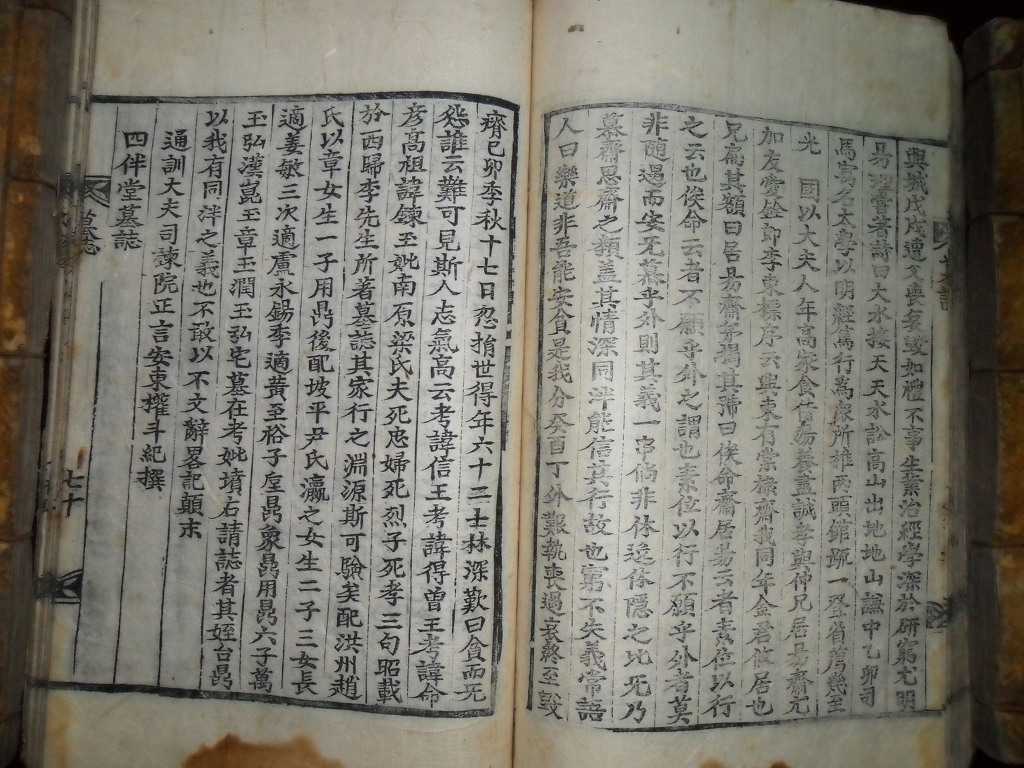 與城戊戌遭父喪哀毀如禮不事生業治經學深於研窮尤明
易理嘗著詩曰大水接天天水訟高山出地地山謙中乙卯司
馬嵩名太學以明經篤行爲衆所推兩頭館題一登省薦幾至
光 國以大夫人年高家食
加友愛 李東標序云與 有 棣齋我同年金君 居也
兄扁其額曰居易齋弟揭其 曰俟命齋居易云者素位以行
之云也俟命云者不願乎外之謂也素位以行不願乎外者莫
非隨遇而安旡慕乎外則其義一串倘非休逸俗隱之比旡乃
慕齋思齋之類盖其情深同泮能信其行故也窮不失義常語
人曰樂道非吾能安貧是我分癸酉丁外艱執喪過哀終至毀
瘠己卯季秋十七日忍捐世得年六十三士林深歎曰貪而旡
怨誰云難可見斯人志氣高云考諱信王考諱得曾王考諱命
彦高祖諱鍊玉妣南原梁氏夫死忠婦死烈子死孝三句昭載
於西歸李先生所著墓誌其家行之淵源斯可驗矣配洪州趙
氏以章女生一子用咼後配坡平尹氏瀛之女生二子三女長
適姜敏三次適盧永錫李適黃至裕子 用 六子萬
玉弘漢崑玉章玉潤玉弘宅墓在考妣墳右請誌者其姪台咼
以我有同泮之義也不敢以不文辭畧記顛末
通訓大夫司諫院正言安東權斗紀撰
四伴堂墓誌
墓誌
七十